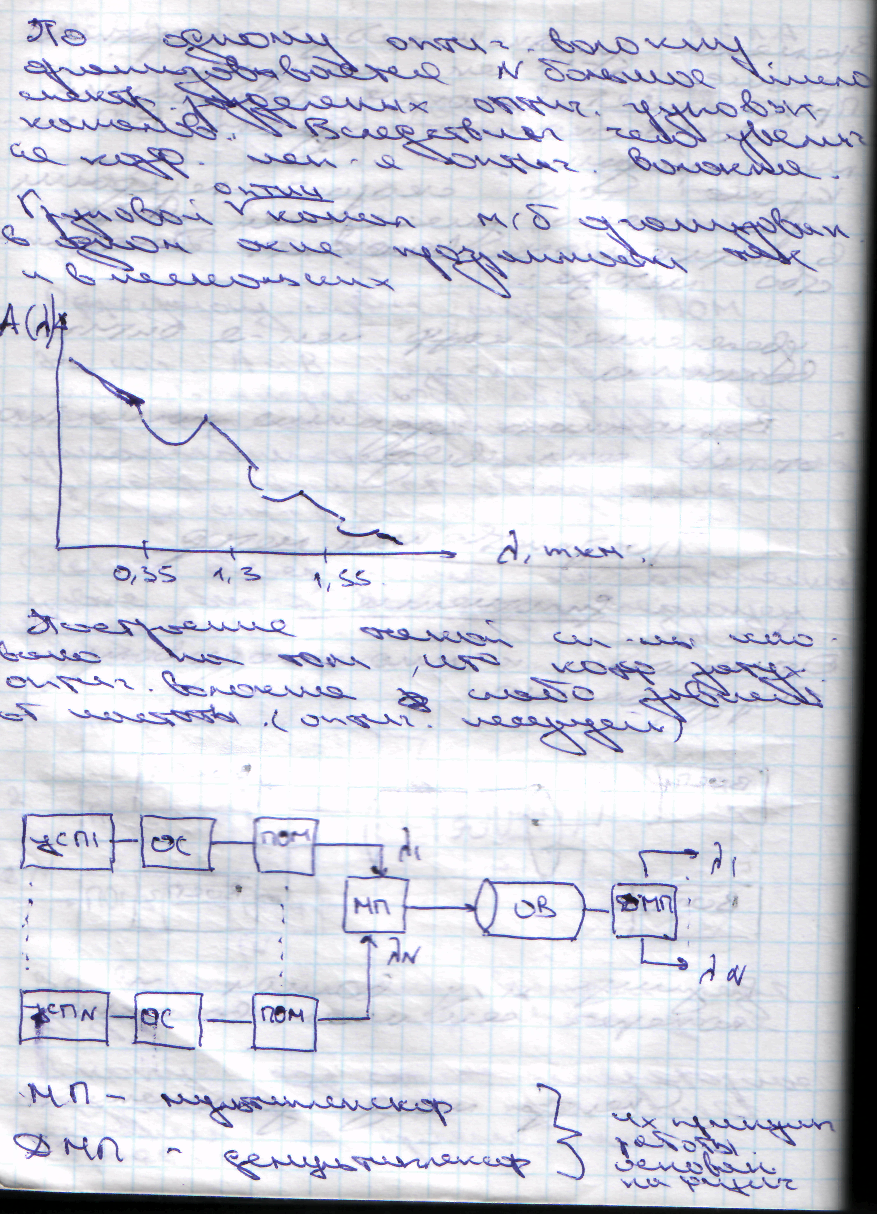 По одному оптич. волокну
организовывается N большое число
спектр. разделенных оптич. групповых
каналов. Вследствии чего увелич
ся коэф. исп-я оптич. волокна.
оптич
Групповой V канал м/б организован
в одном окне прозрачности так
и в нескольких
A(λ)
λ, мкм.
0,85 1,3 1,55
Построение такой си-мы
на том, что коэф. затух.
оптич. волокна слабо зависит
от частоты (оптич. несущей)
ЦСП1 ОС ПОМ λ1
МП ОВ ДМП λ1
λN λN
ЦСПN ОС ПОМ
МП - мультиплексор
ДМП - демультиплексор
их принцип
работы
основан
на